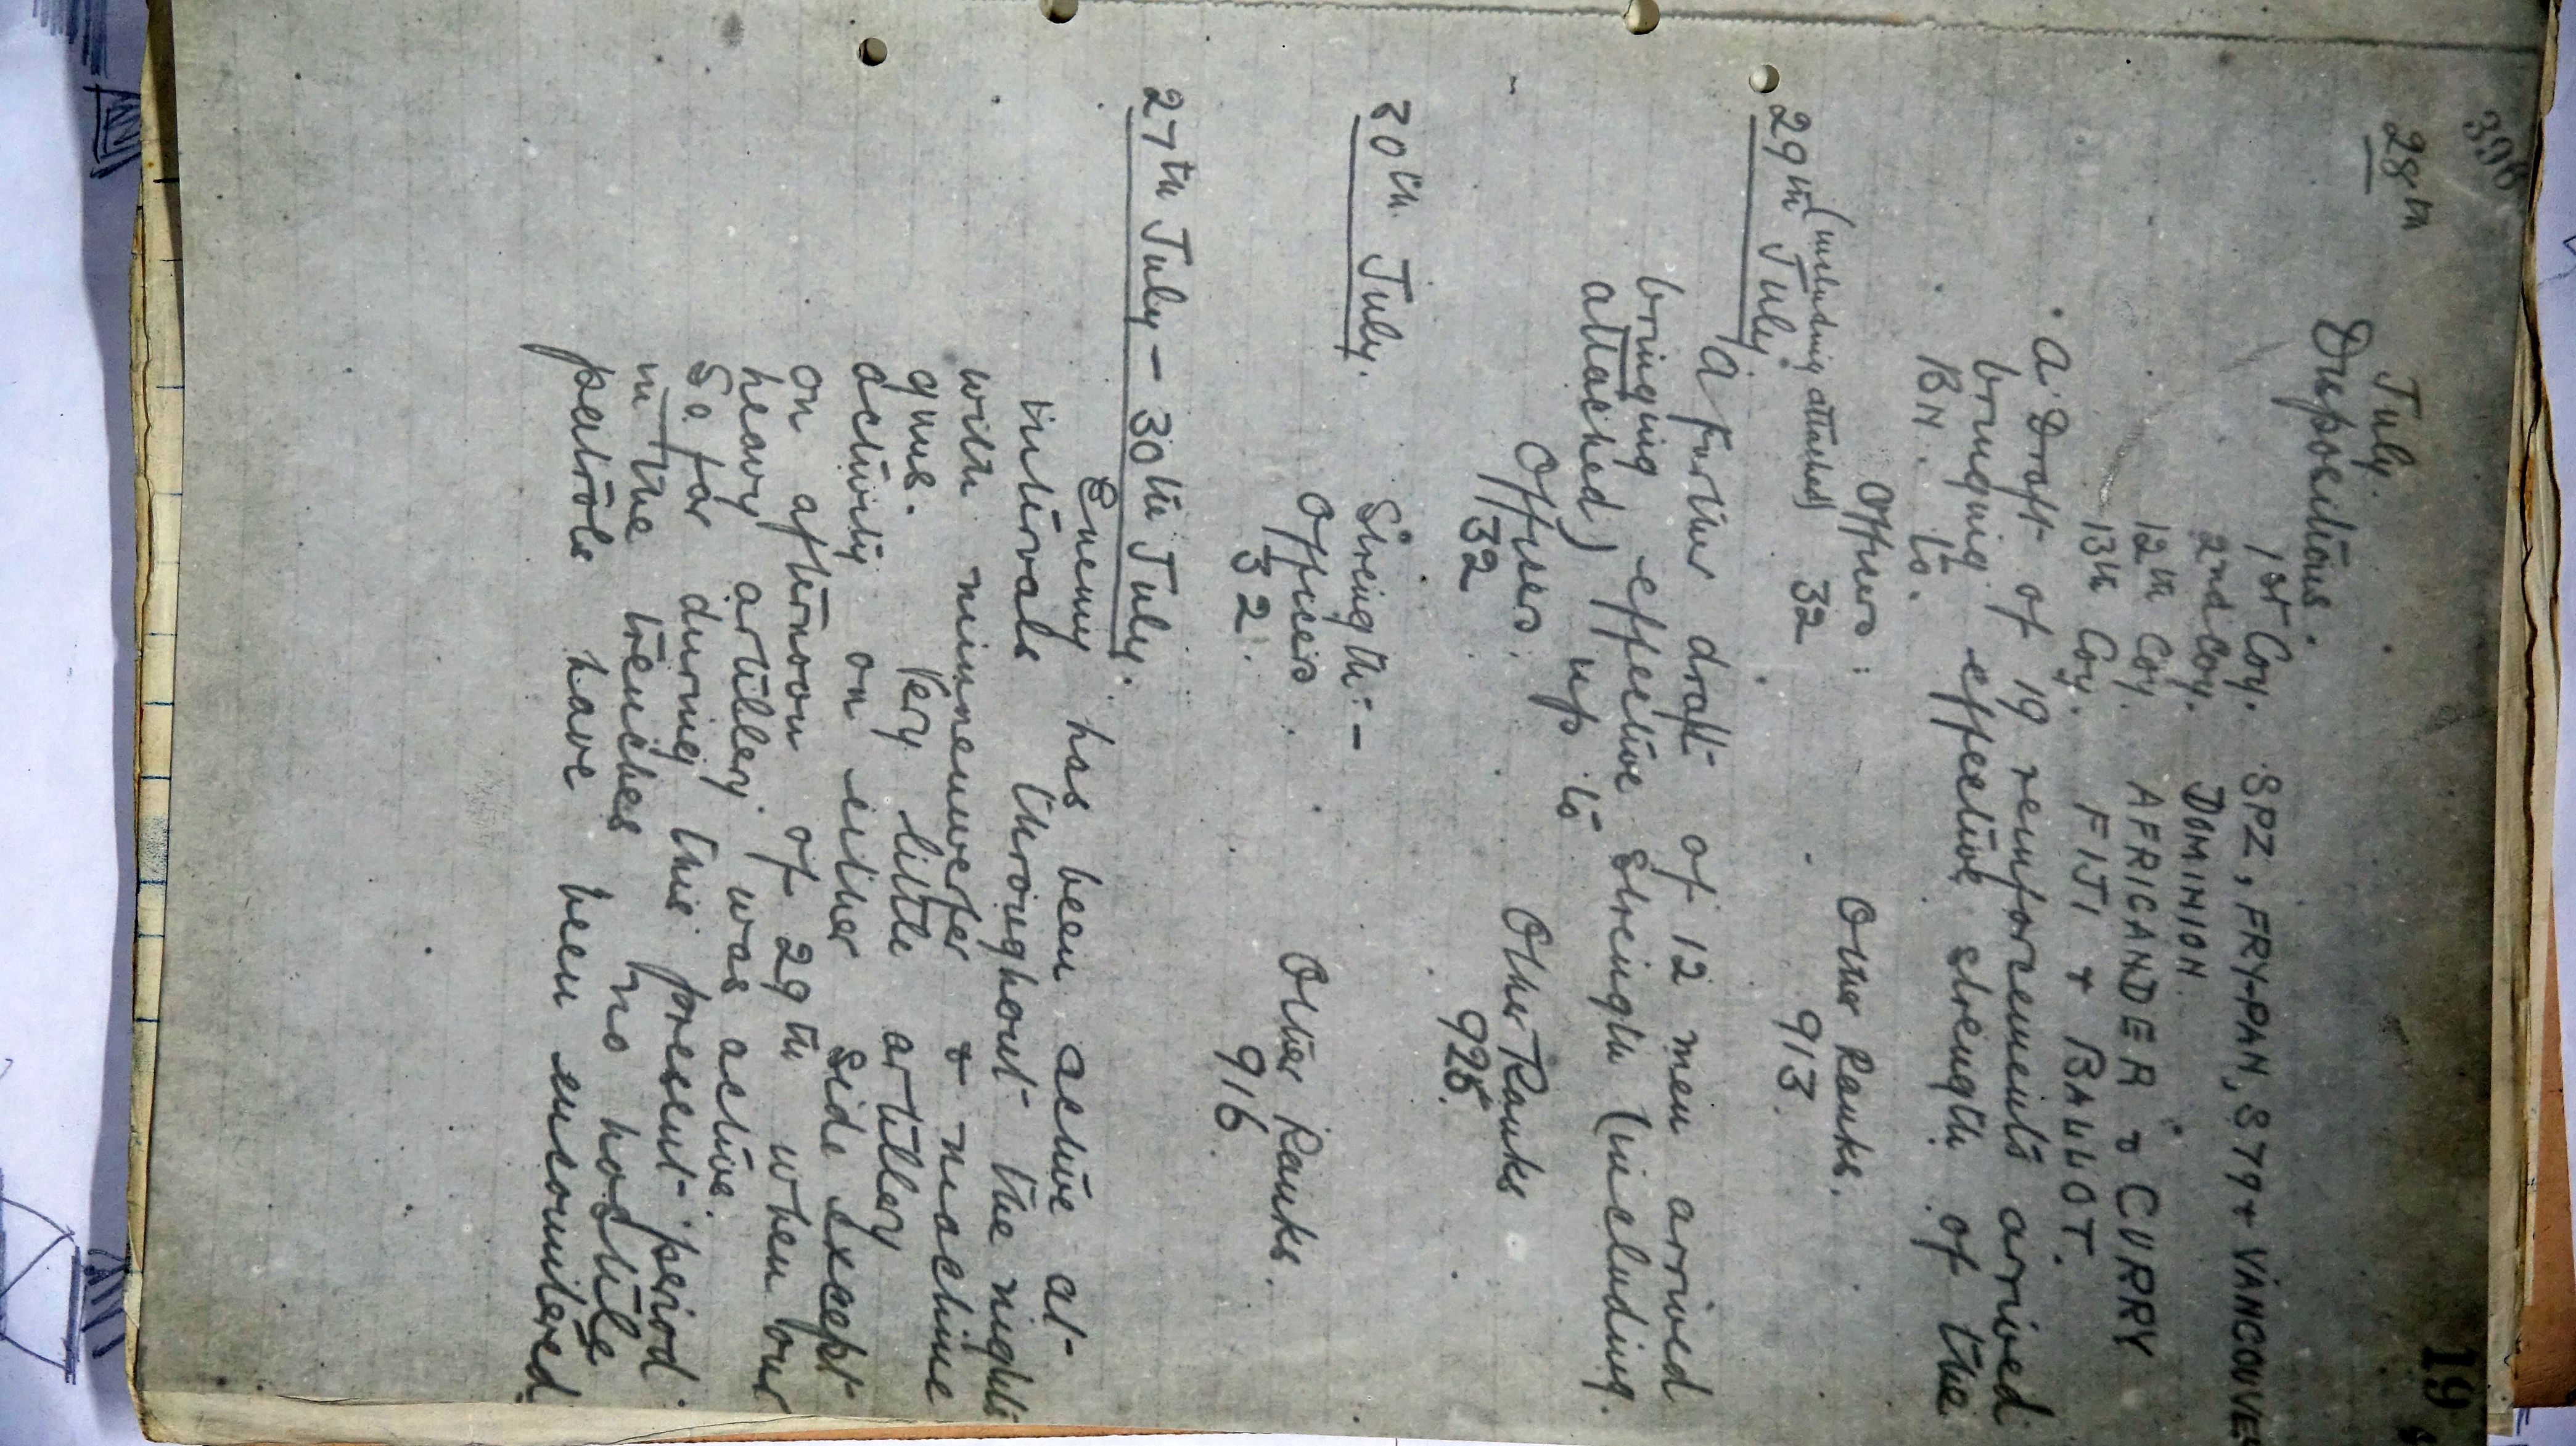 398
19
28th July.
Dispositions.
1st Coy. SPZ, FRY-PAN, S79 + VANCOUVER
2nd Coy. DOMINION
12th Coy. AFRICANDER & CURRY
13th Coy. FIJI & BALLOT.
A Draft of 19 reinforcements arrived
bringing effective strength of the
BN. to.
Officers: Other Ranks.
(including attached) 32 913.
29th July.
A further draft of 12 men arrived
bringing effective strength (including
attached) up to
Officers. Other Ranks
32 925.
30th July.
Strength:-
Officers Other Ranks.
32. 916.
27th July - 30th July.
Enemy has been active at
intervals throughout the night
with minnenwerfer & machine
guns. Very little artillery
activity on either side except
on afternoon of 29th when our
heavy artillery was active.
So far during this present period
in the trenches no hostile
patrols have been encountered.